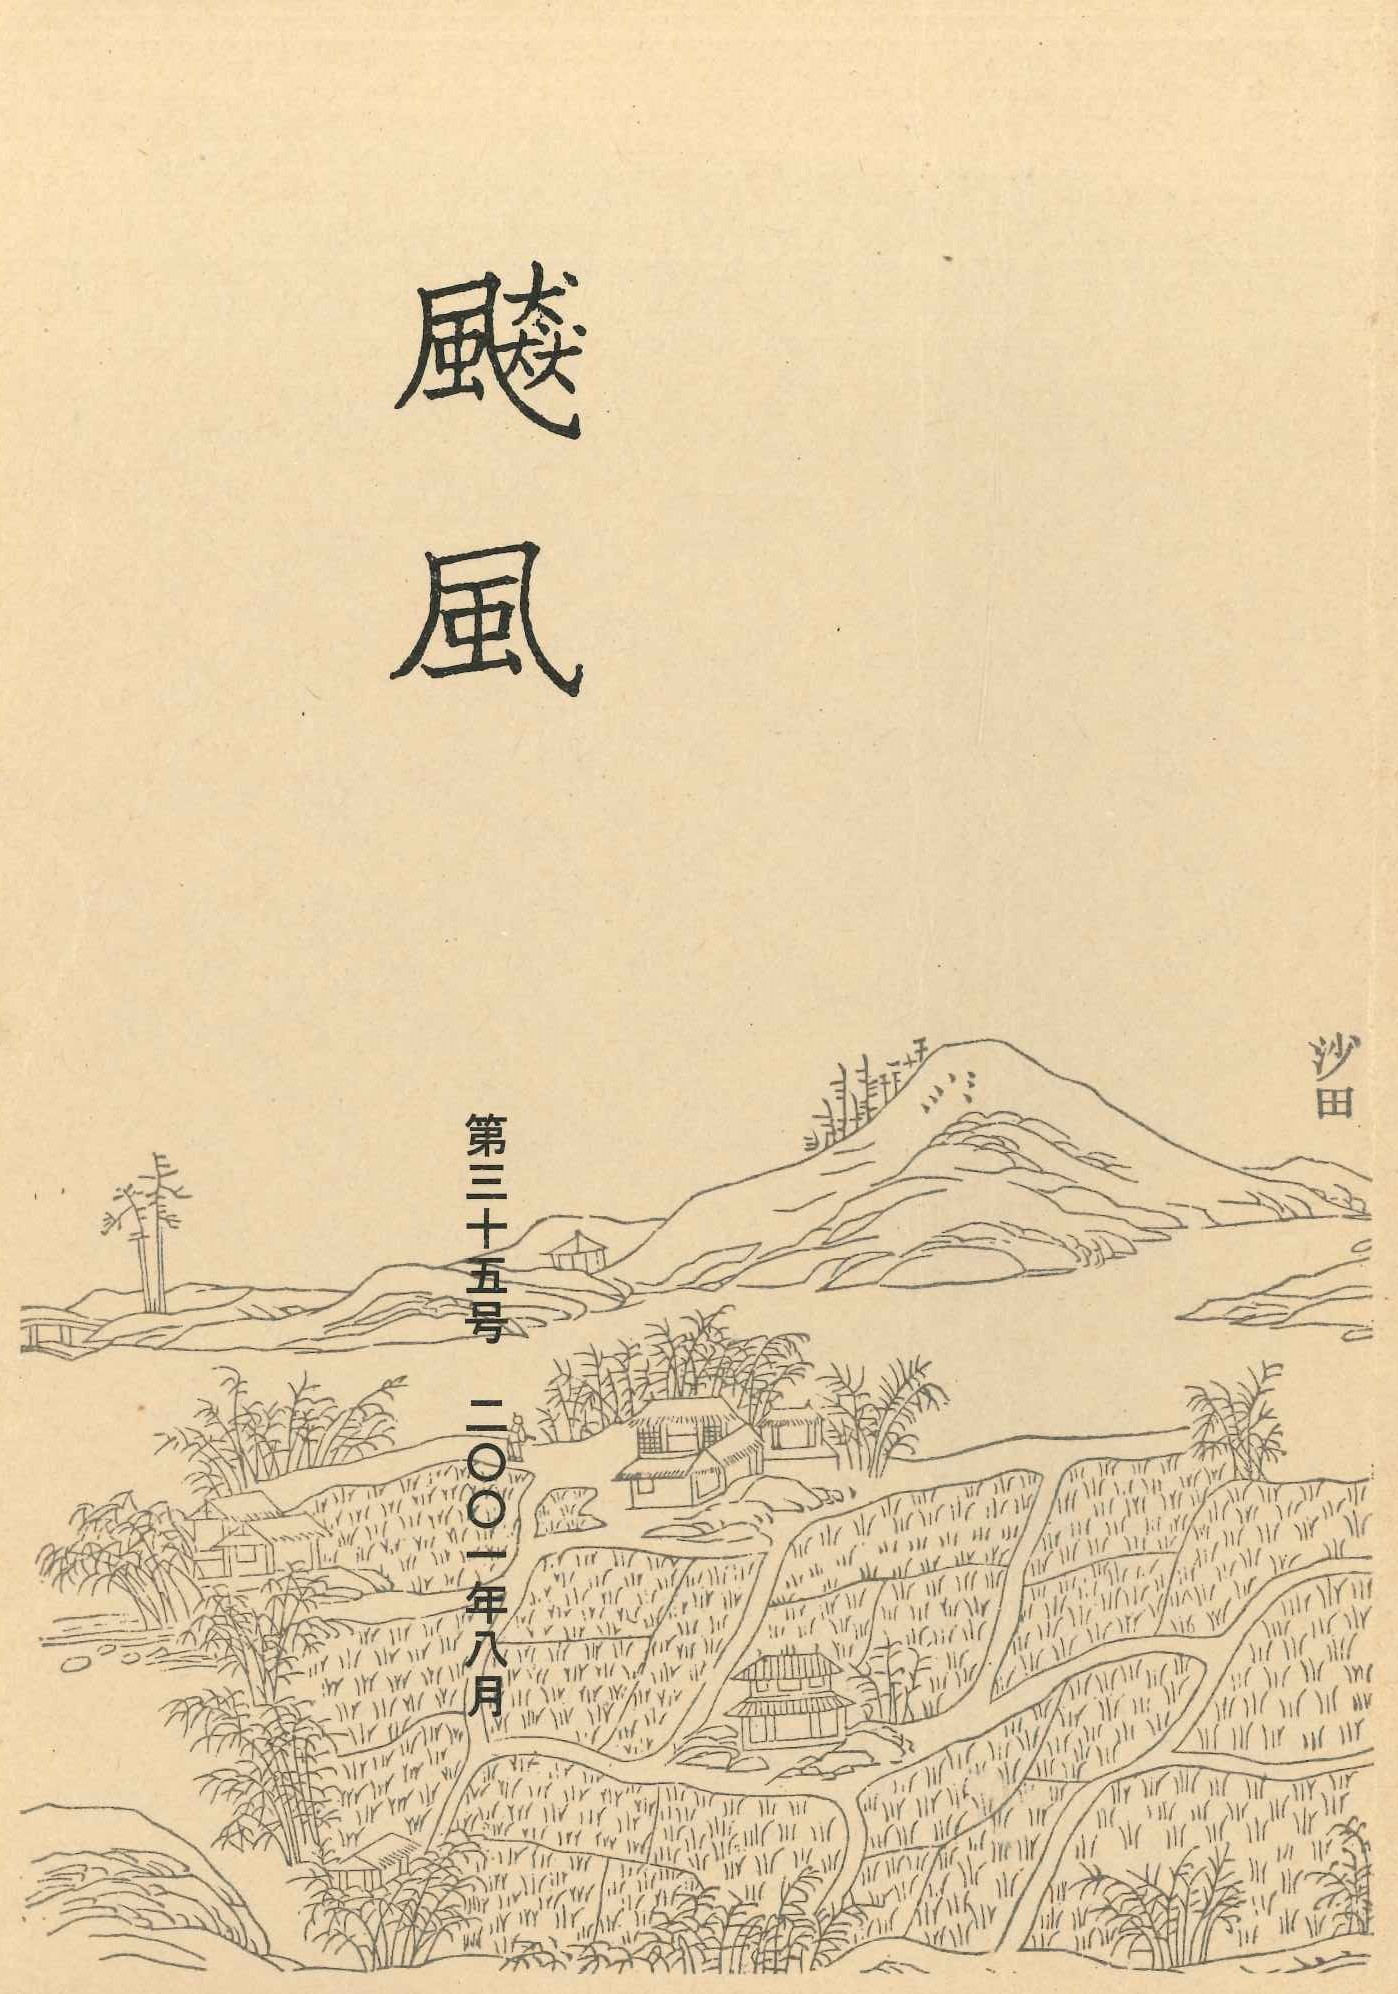 飆
風
第三十五号　二〇〇一年八月
沙田